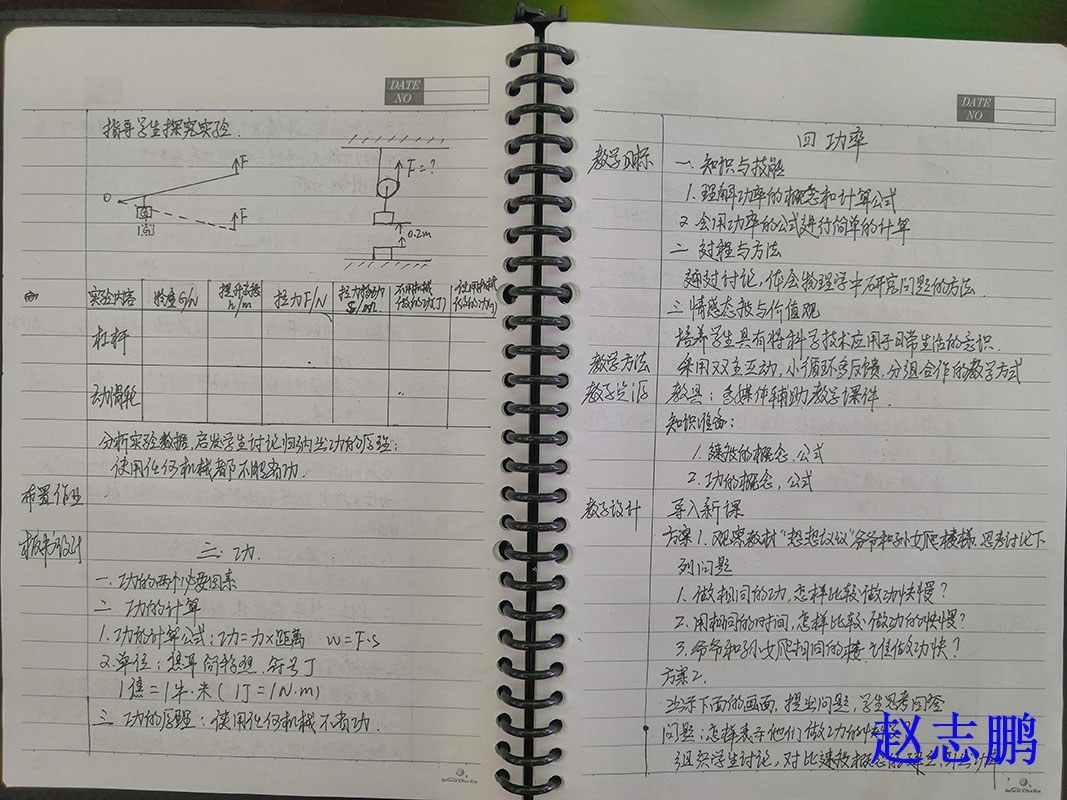 DATE
NO
指导学生探究实验.
F
O
G
F
G
F=?
0.2m
实验内容 物重G/N 提升高度h/m 拉力F/N 拉力移动S/m 不用机械做的功(J) 使用机械做的功(J)
杠杆
动滑轮
分析实验数据,启发学生讨论归纳出功的原理:
使用任何机械都不省功.
布置作业
板书设计
三.功.
一.功的两个必要因素
二 功的计算
1.功的计算公式:功=力×距离 W=F·S
2.单位:焦耳 简称焦.符号J
1焦=1牛·米(1J=1N·m)
三 功的原理:使用任何机械不省功.
DATE
NO
四 功率
教学目标 一.知识与技能
1.理解功率的概念和计算公式
2.会用功率的公式进行简单的计算
二 过程与方法
通过讨论,体会物理学中研究问题的方法.
三 情感态度与价值观
培养学生具有将科学技术应用于日常生活的意识.
教学方法 采用双主互动,小循环多反馈.分组合作的教学方式
教学资源 教具:多媒体辅助教学课件.
知识准备:
1.速度的概念.公式
2.功的概念,公式
教学设计 导入新课
方案1.观察教材"想想议议"爷爷和孙女爬楼梯.思考讨论下
列问题
1.做相同的功,怎样比较做功快慢?
2.用相同的时间,怎样比较做功的快慢?
3.爷爷和孙女爬相同的楼,谁做功快?
方案2.
出示下面的画面,提出问题,学生思考回答
问题:怎样表示他们做功的快
组织学生讨论,对比速度概念的建立,引出功率
赵志鹏